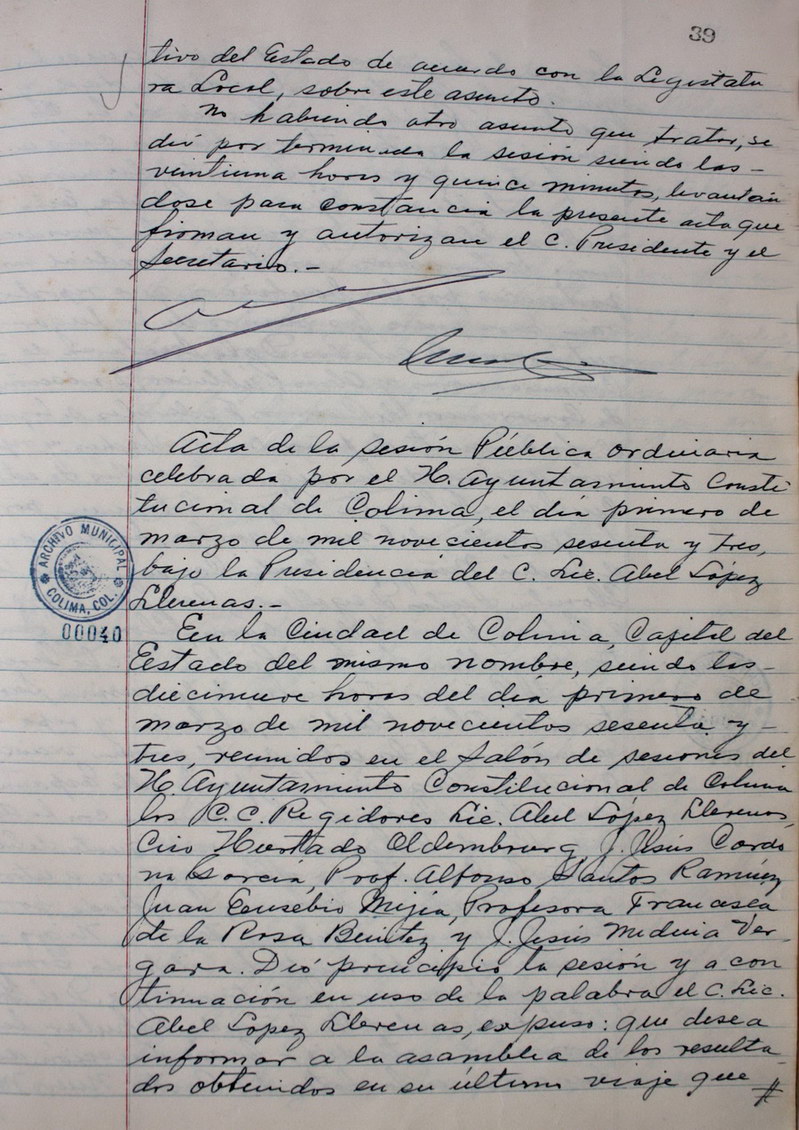 39
tivo del Estado de acuerdo con la Legislatu
ra Local, sobre este asunto.
No habiendo otro asunto que tratar, se
dió por terminada la sesión siendo las-
veintiuna horas y quince minutos, levantán
dose para constancia la presente acta que
firman y autorizan el C. Presidente y el
Secretario.-
Acta de la sesión Pública Ordinaria
celebrada por el H. Ayuntamiento Consti
tucional de Colima, el día primero de
marzo de mil novecientos sesenta y tres,
bajo la Presidencia del C. Lic. Abel López
Llerenas.-
ARCHIVO MUNICIPAL
COLIMA, COL.
00040
En la Ciudad de Colima, Capital del
Estado del mismo nombre, siendo las-
diecinueve horas del día primero de
marzo de mil novecientos sesenta y-
tres, reunidos en el Salón de sesiones del
H. Ayuntamiento Constitucional de Colima
los C.C. Regidores Lic. Abel López Llerenas,
Ciro Hurtado Oldembourg, J. Jesús Cardo
na García, Prof. Alfonso Santos Ramírez,
Juan Eusebio Mejía, Profesora Francisca
de la Rosa Benítez y J. Jesús Medina Ver-
gara. Dió principio la sesión y a con
tinuación en uso de la palabra el C. Lic.
Abel López Llerenas, expuso: que desea
informar a la asamblea de los resulta
dos obtenidos en su último viaje que #